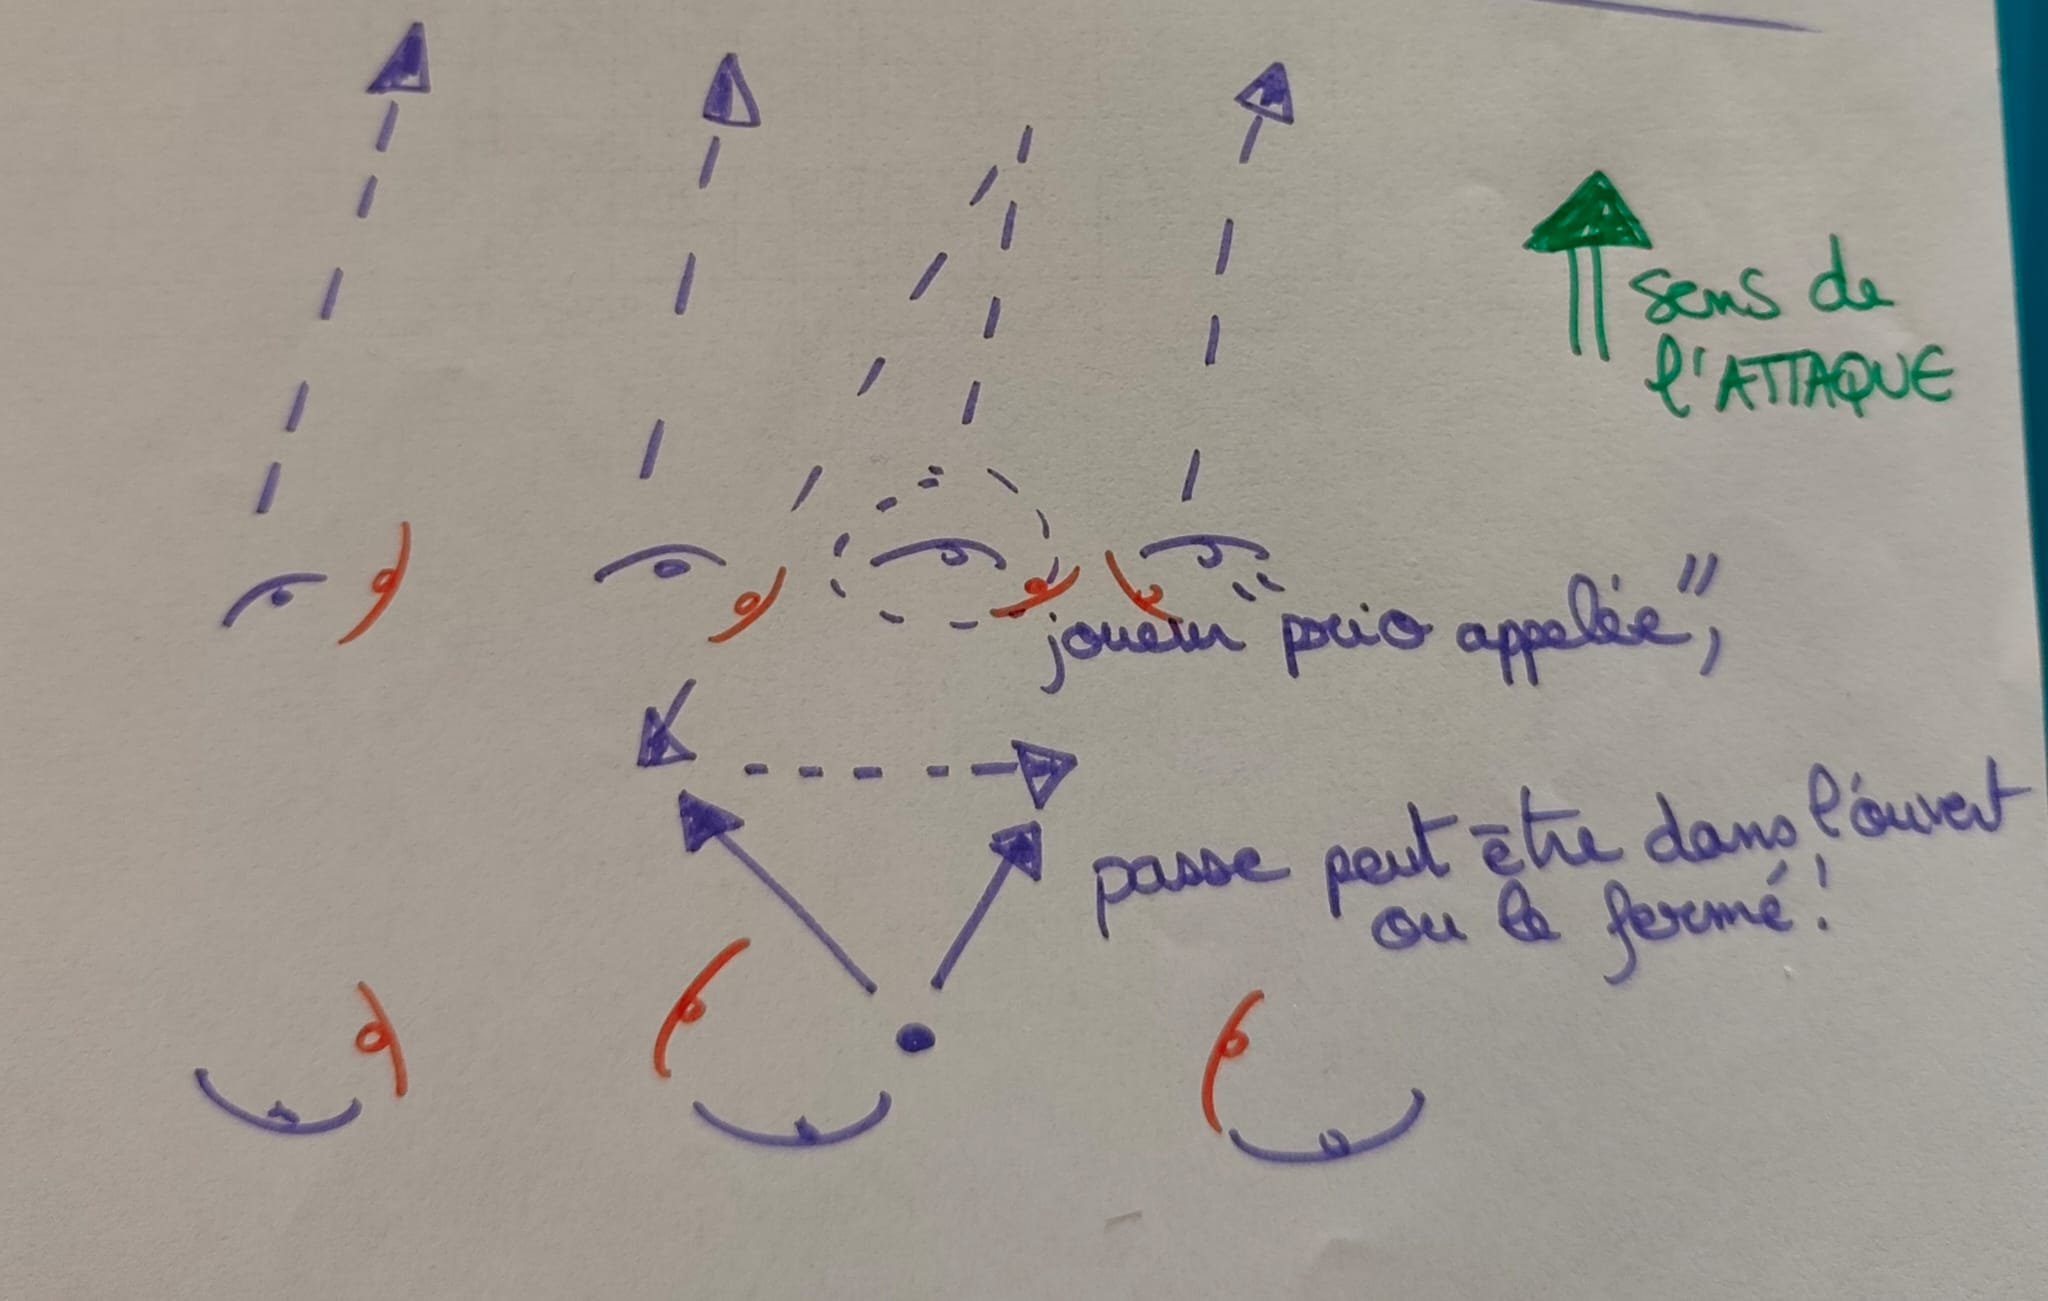 sens de
l'ATTAQUE
joueur "prio appelée",
passe peut être dans l'ouvert
ou le fermé!